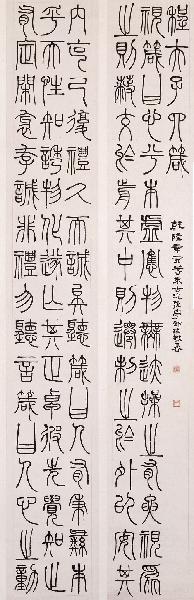 程夫子四箴
視箴曰心兮本虛應物無迹操之有要視為
之則蔽交於前其中則遷制之於外以安其
內克己復禮久而誠矣聽箴曰人有秉彝本
乎天性知誘物化遂亡其正卓彼先覺知止
有定閑邪存誠非禮勿聽言箴曰人心之動
乾隆